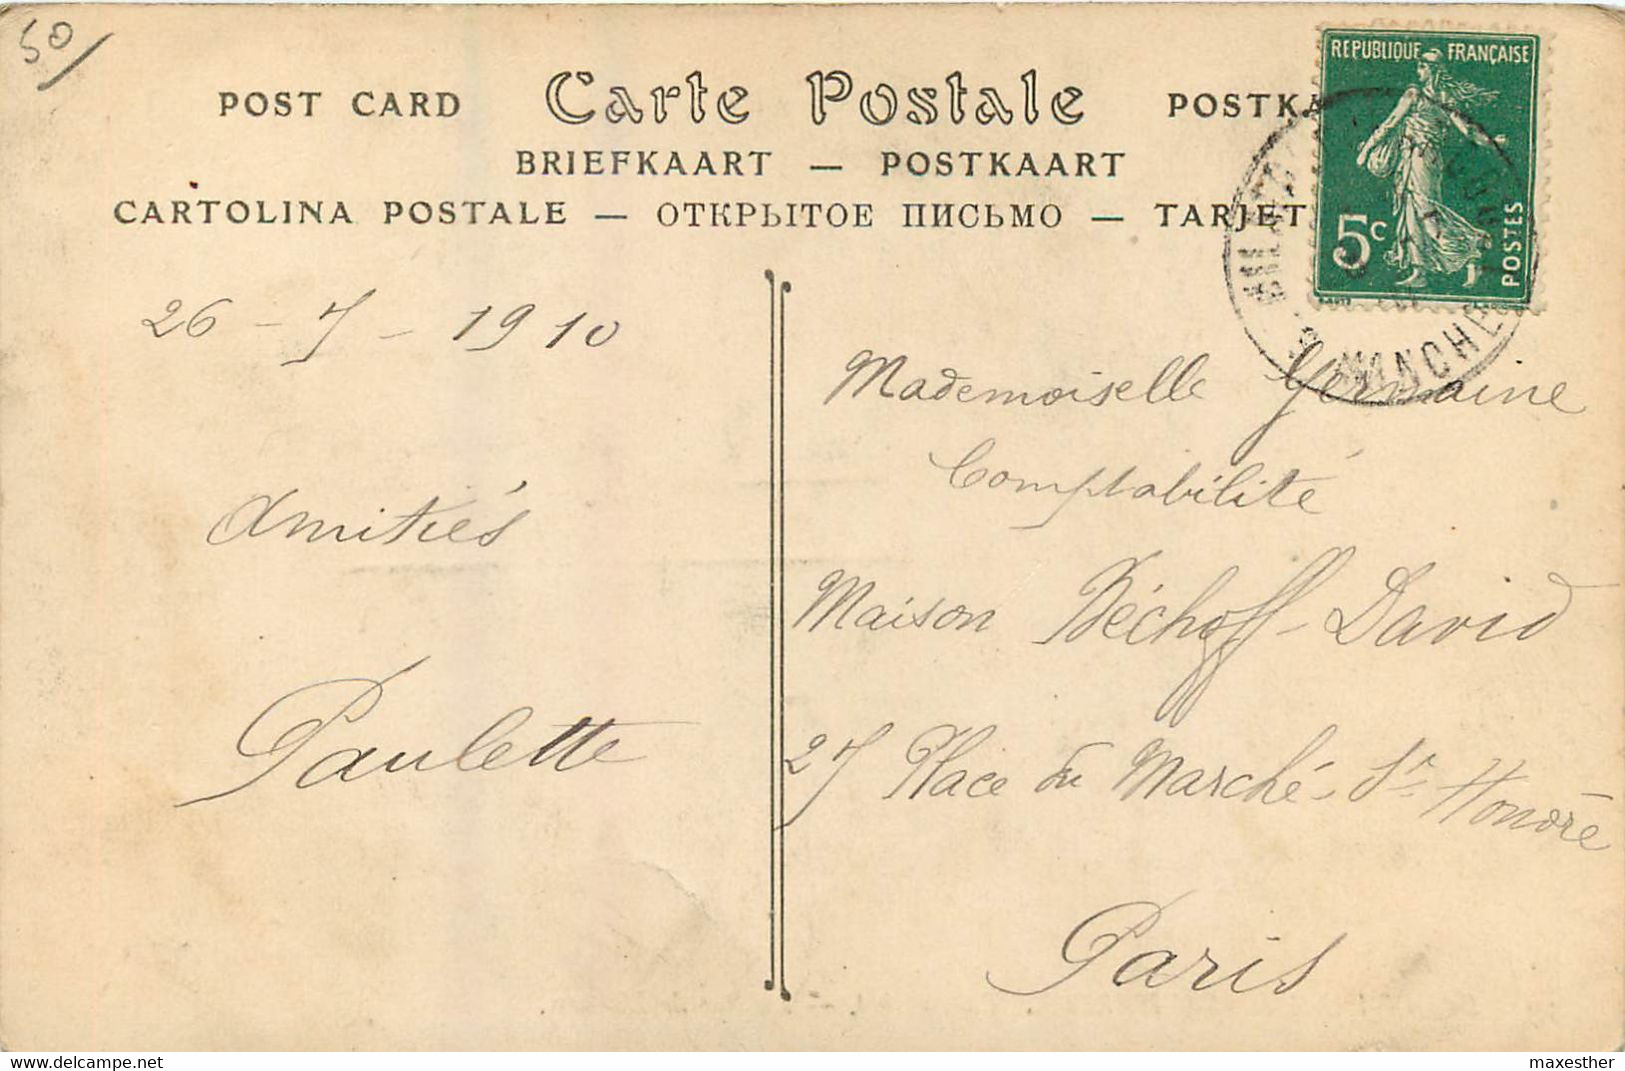 50/
POST CARD Carte Postale POSTKA
BRIEFKAART — POSTKAART
CARTOLINA POSTALE — ОТКРЫТОЕ ПИСЬМО — TARJET
REPUBLIQUE FRANÇAISE
5c
POSTES
MANCHE
26 - 7 - 1910
Amitiés
Paulette
Mademoiselle Germaine
Comptabilité
Maison Béchoff-David
27 Place du Marché-St Honoré
Paris
delcampe.net
maxesther